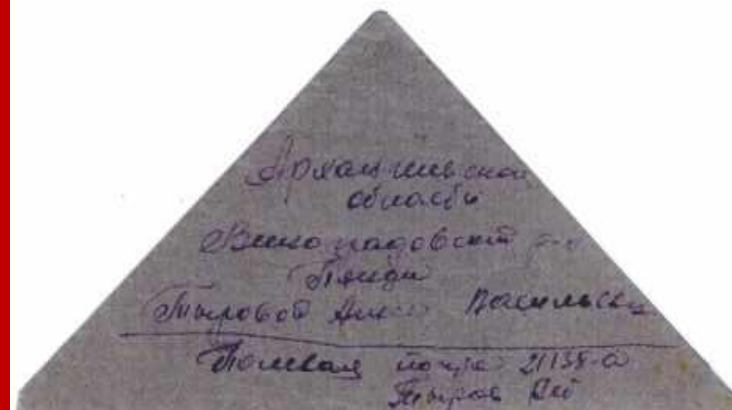 Архангельской
области
Виноградовский р-н
Пянда
Тыровой Анне Васильевне
Полевая почта 21138-а
Тыров